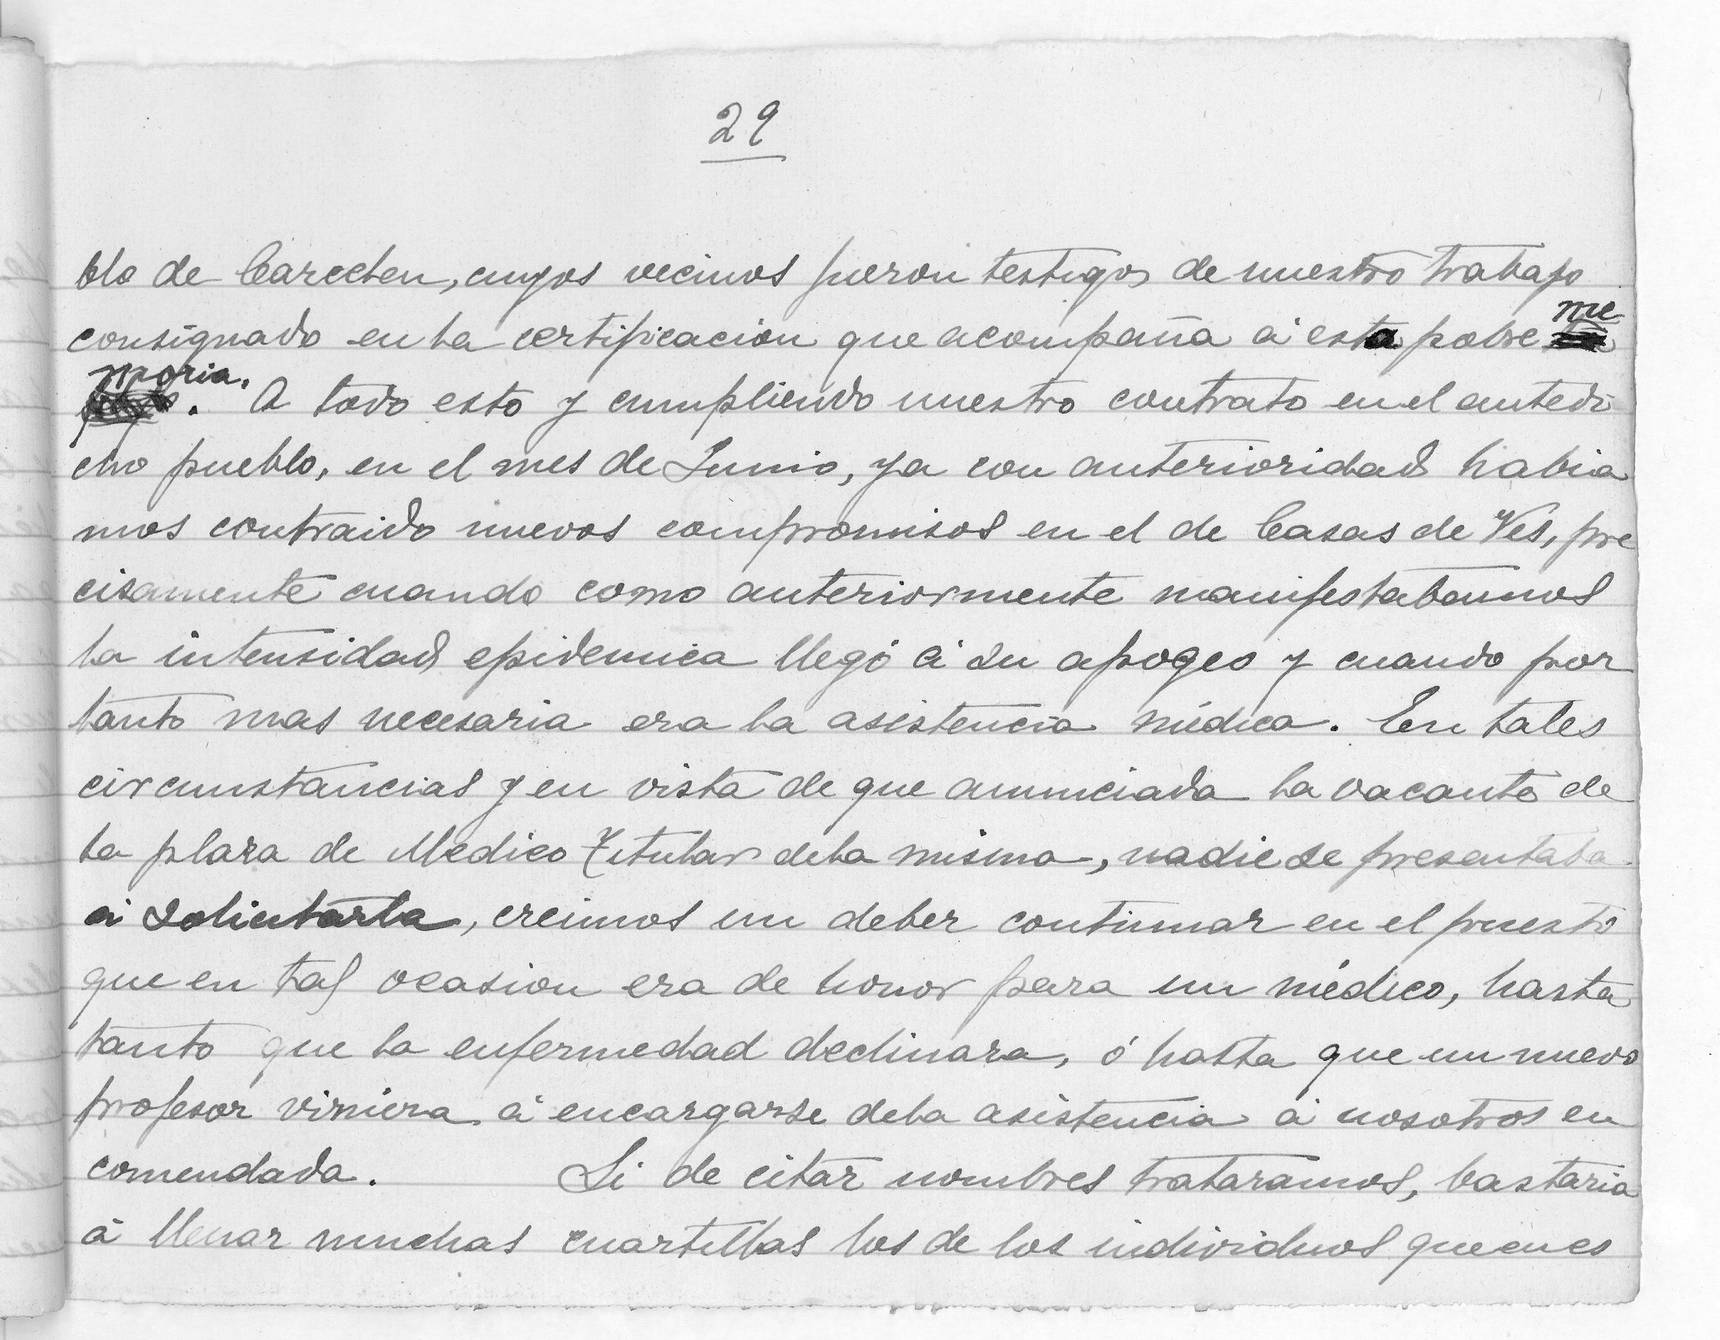 29
blo de Carcelen, cuyos vecinos fueron testigos de nuestro trabajo
consignado en la certificacion que acompaña á esta pobre me
moria. A todo esto y cumpliendo nuestro contrato en el antedi
cho pueblo, en el mes de Junio, ya con anterioridad habia
mos contraido nuevos compromisos en el de Casas de Ves, pre
cisamente cuando como anteriormente manifestabamos
la intensidad epidemica llegó á su apogeo y cuando por
tanto mas necesaria era la asistencia médica. En tales
circunstancias y en vista de que anunciada la vacante de
la plaza de Medico Titular de la misma, nadie se presentaba
á solicitarla, creimos un deber continuar en el puesto
que en tal ocasion era de honor para un médico, hasta
tanto que la enfermedad declinara, ó hasta que un nuevo
profesor viniera á encargarse de la asistencia á nosotros en
comendada. Si de citar nombres trataramos, bastaria
á llenar muchas cuartillas los de los individuos que en es